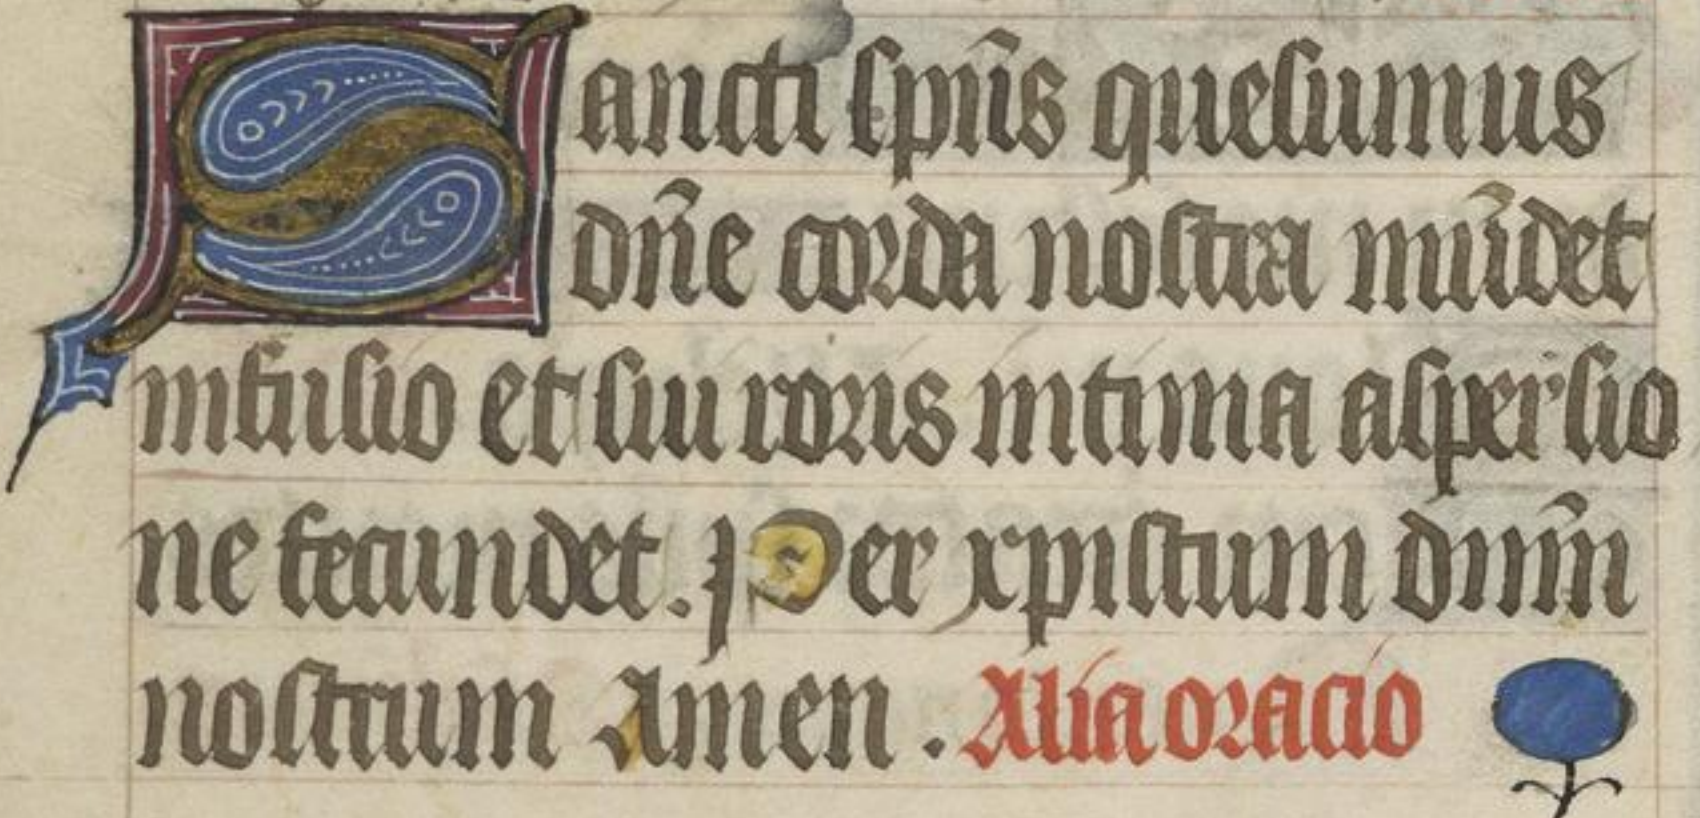 Sancti sp̄us quesumus
dn̄e corda nostra mūdet
infusio et sui roris intima aspersio
ne fecundet. Per xpistum dnm̄
nostrum Amen. Alia oracio